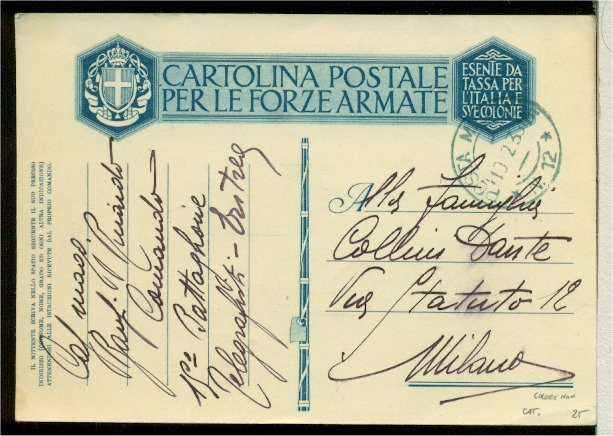 CARTOLINA POSTALE
PER LE FORZE ARMATE
ESENTE DA
TASSA PER
L'ITALIA E
SVE COLONIE
POSTA M
N. 12
IL MITTENTE SCRIVA NELLO SPAZIO SEGUENTE IL SUO PRECISO
INDIRIZZO (COGNOME, NOME, GRADO ED OGNI ALTRA INDICAZIONE)
ATTENENDOSI ALLE ISTRUZIONI RICEVUTE DAL PROPRIO COMANDO.
Comando
Battaglione
Telegrafisti - Eritrea
Alla famiglia
Collini Dante
Via Statuto 12
Milano
COLORE NON
CAT. 25